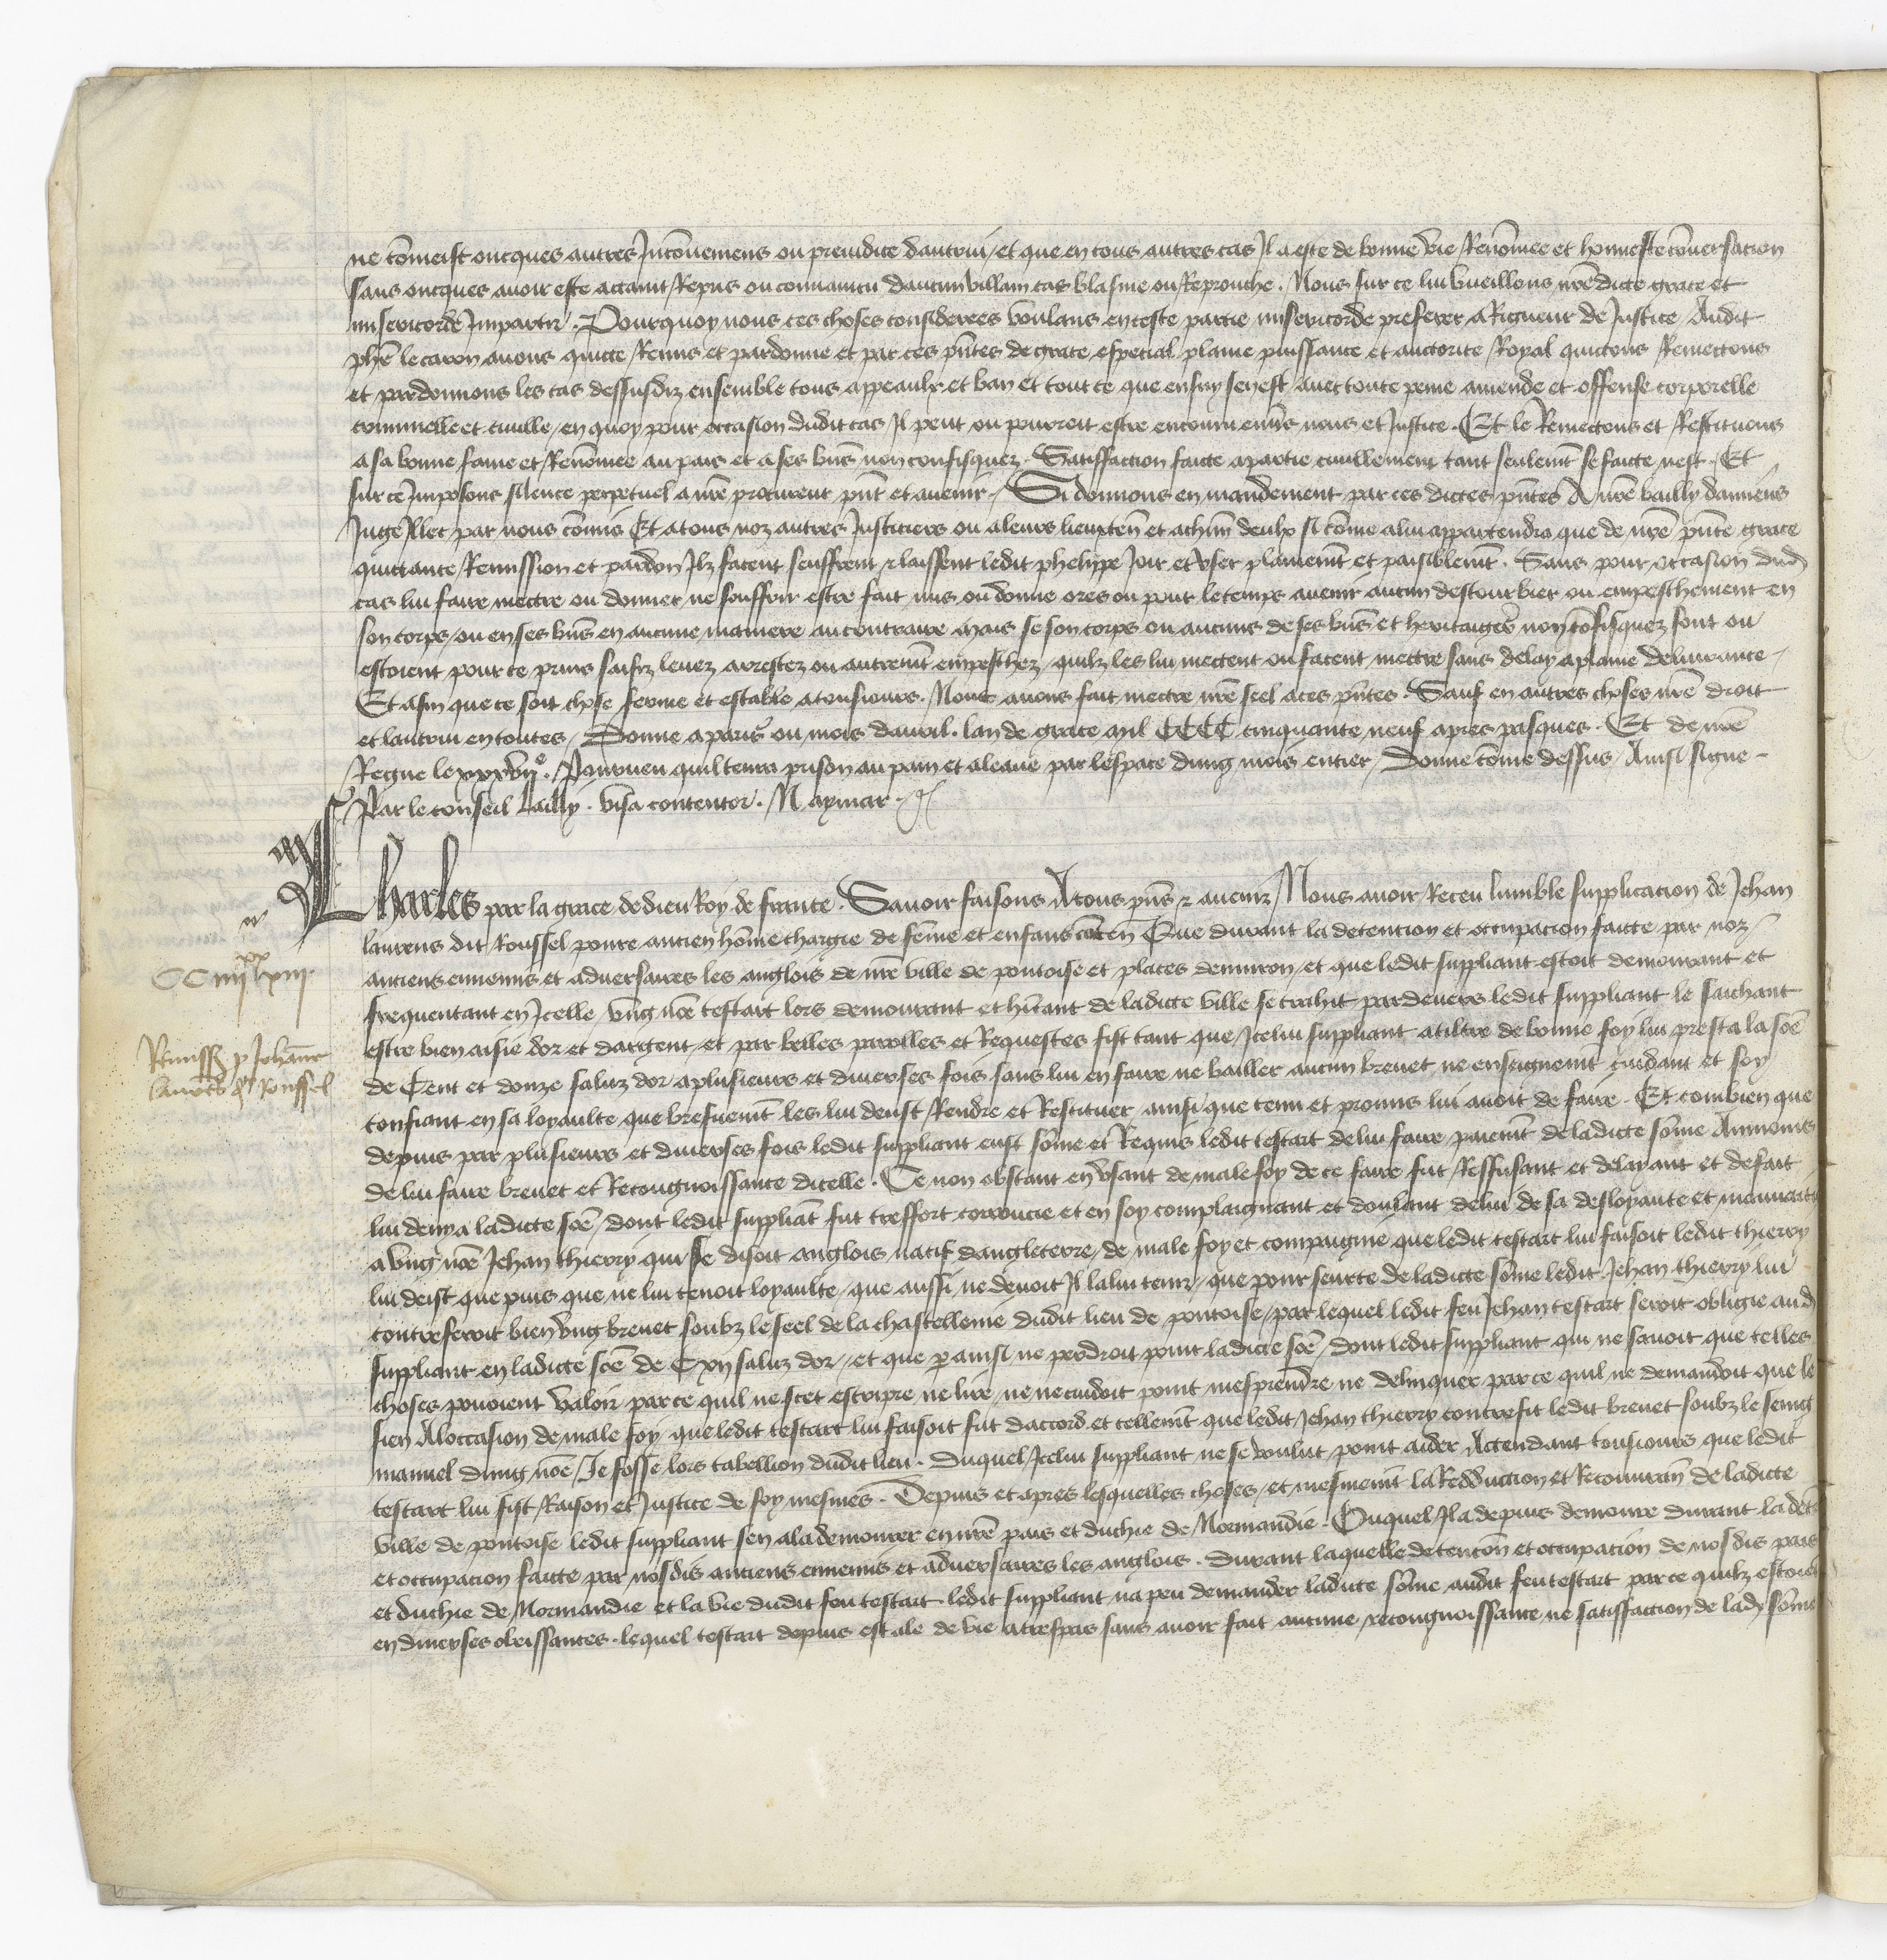 ne cõmeist oncques autres Inconveniens ou preiudice dautrui / et que en tous autres cas Il a este de bonne vie Renõmee et honneste cõversacion
sans oncques avoir este actaint Repris ou convaincu daucun villain cas blasme ou Reprouche . Nous sur ce lui vueillons nrẽ dicte grace et
misericorde Impartir . Pourquoy nous ces choses considerees voulans en ceste partie misericorde preferer a Rigueur de Justice Audit
phẽ le caron avons quicte Remis et pardonne et par ces pñtes de grace especial plaine puissance et auctorite Royal quictons Remectons
et pardonnons les cas dessusdiz ensemble tous appeaulx et ban et tout ce que ensuy sen est avec toute peine amende et offense corporelle
criminelle et civille / en quoy pour occasion dudit cas Il peut ou pourroit estre encouru enũs nous et Justice . Et le Remectons et Restituons
a sa bonne fame et Renõmee au pais et a ses biẽs non confisquez . Satisfaction faicte a partie civillement tant seulemt̃ se faicte nest . Et
sur ce Imposons silence perpetuel a nrẽ procureur pñt et avenir . Si donnons en mandement par ces dictes pñtes A nrẽ bailly damiens
Juge Illec par nous cõmis Et a tous noz autres Justiciers ou a leurs lieuxteñ et a chũn deulx si cõme a lui appartendra que de nrẽ pñte grace
quictance Remission et pardon Ilz facent seuffrent & laissent ledit phelippe Joir et user plainemt̃ et paisiblemt̃ . Sans pour occasion dud
cas lui faire mectre ou donner ne souffrir estre fait mis ou donne ores ou pour le temps avenir aucun destourbier ou empeschement en
son corps / ou en ses biẽs en aucune maniere au contraire Mais se son corps ou aucuns de ses biẽs et heritaiges non cõfisquez sont ou
estoient pour ce prins saisiz levez arrestez ou autremt̃ empeschez / quilz les lui mectent ou facent mectre sans delay a plaine delivrance -
Et afin que ce soit chose ferme et estable a tousiours . Nous avons fait mectre nrẽ seel a ces pñtes . Sauf en autres choses nrẽ droit
et lautrui en toutes / Donne a paris ou mois davril . lan de grace mil CCCC cinquante neuf apres pasques . Et de nrẽ
Regne le xxxvijᵉ . Pourveu quil tenra prison au pain et a leaue par lespace dung mois entier / Donne cõme dessus / Ainsi signe -
Par le conseil Lailly . visa contentor . N aymar .
Charles par la grace de dieu Roy de france . Savoir faisons A tous pñs & avenir Nous avoir Receu lumble supplicacion de Jehan
laurens dit Roussel povre ancien hõme chargie de fẽme et enfans coñteñ Que durant la detencion et occupacion faicte par noz
CC iiijˣˣ xiij
anciens ennemis et adversaires les anglois de nrẽ ville de pontoise et places denviron / et que ledit suppliant estoit demourant et
frequentant en Icelle / ung nõe testart lors demourant et hĩtant de ladicte ville se trahit pardevers ledit suppliant le saichant
Remissio p Johanne
laurẽs dt Roussel
estre bien aisie dor et dargent / et par belles parolles et Requestes fist tant que Icelui suppliant a tiltre de bonne foy lui presta la sõe
de Cent et douze saluz dor a plusieurs et diverses fois sans lui en faire ne bailler aucun brevet ne enseignemt̃ cuidant et soy
confiant en sa loyaulte que briefvemt̃ les lui deust Rendre et Restituer ainsi que tenu et promis lui avoit de faire . Et combien que
depuis par plusieurs et diverses fois ledit suppliant eust sõme et Requis ledit testart de lui faire paiemt̃ de ladicte sõme Aumoins
de lui faire brevet et Recongnoissance dicelle . Ce non obstant en usant de male foy de ce faire fut Reffusant et delayant et de fait
lui denya ladicte sõe / dont ledit suppliãt fut tresfort corroucie et en soy complaignant et doulant de lui de sa desloyaute et
a ung nõe Jehan thierry qui se disoit anglois natif dangleterre / de male foy et compaignie que ledit testart lui faisoit ledit thierry
lui deist que puis que ne lui tenoit loyaulte / que aussi ne devoit Il la lui tenir / que pour seurte de ladicte sõme ledit Jehan thierry lui
contreferoit bien ung brevet soubz le seel de la chastellenie dudit lieu de pontoise / par lequel ledit feu Jehan testart seroit obligie aud
suppliant en ladicte sõe de C xij saluz dor / et que p ainsi ne perdroit point ladicte sõe / dont ledit suppliant qui ne savoit que telles
choses povoient valoir par ce quil ne scet escripre ne lire / ne ne cuidoit point mesprendre ne delinquer par ce quil ne demandoit que le
sien A loccasion de male foy que ledit testart lui faisoit fut daccord et tellemt̃ que ledit Jehan thierry contrefit ledit brevet soubz le seing
manuel dung nõe / De fosse lors tabellion dudit lieu . Duquel Icelui suppliant ne se voulut point aider Actendant tousiours que ledit
testart lui fist Raison et Justice de soy mesmes . Depuis et apres lesquelles choses / et mesmemt̃ la Redduction et Recouvrañ de ladicte
ville de pontoise ledit suppliant sen ala demourer en nrẽ pais et duchie de Normandie . Ouquel Il a depuis demoure durant la deten
et occupacion faicte par nosdis anciens ennemis et adversaires les anglois . Durant laquelle detencõn et occupacion de nosdis pais
et duchie de Normandie et la vie dudit feu testart ledit suppliant na peu demander ladicte sõme audit feu testart par ce quilz estoient
en diverses obeissances . lequel testart depuis est ale de vie a trespas sans avoir fait aucune recongnoissance ne satisfaction de lad sõme